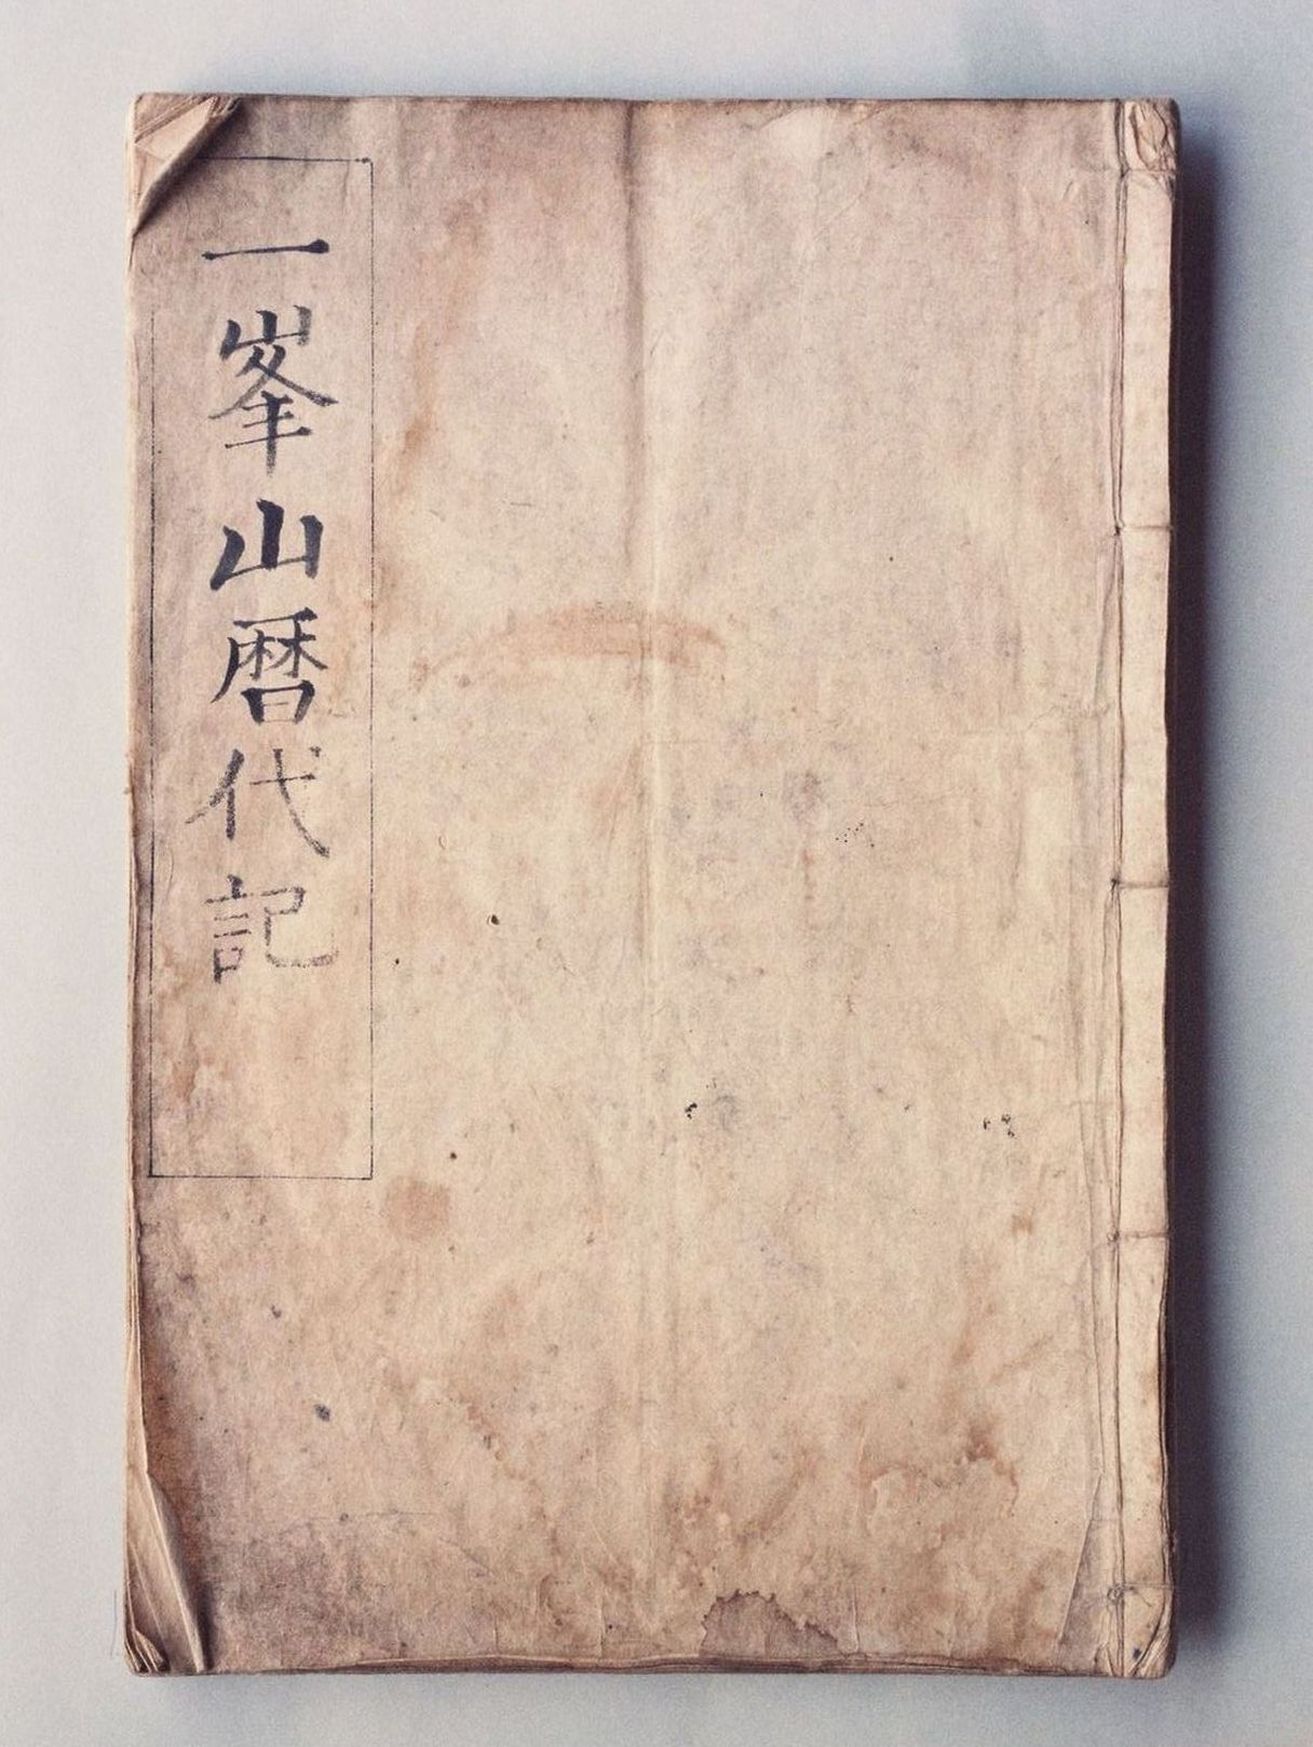 一峯山暦代記